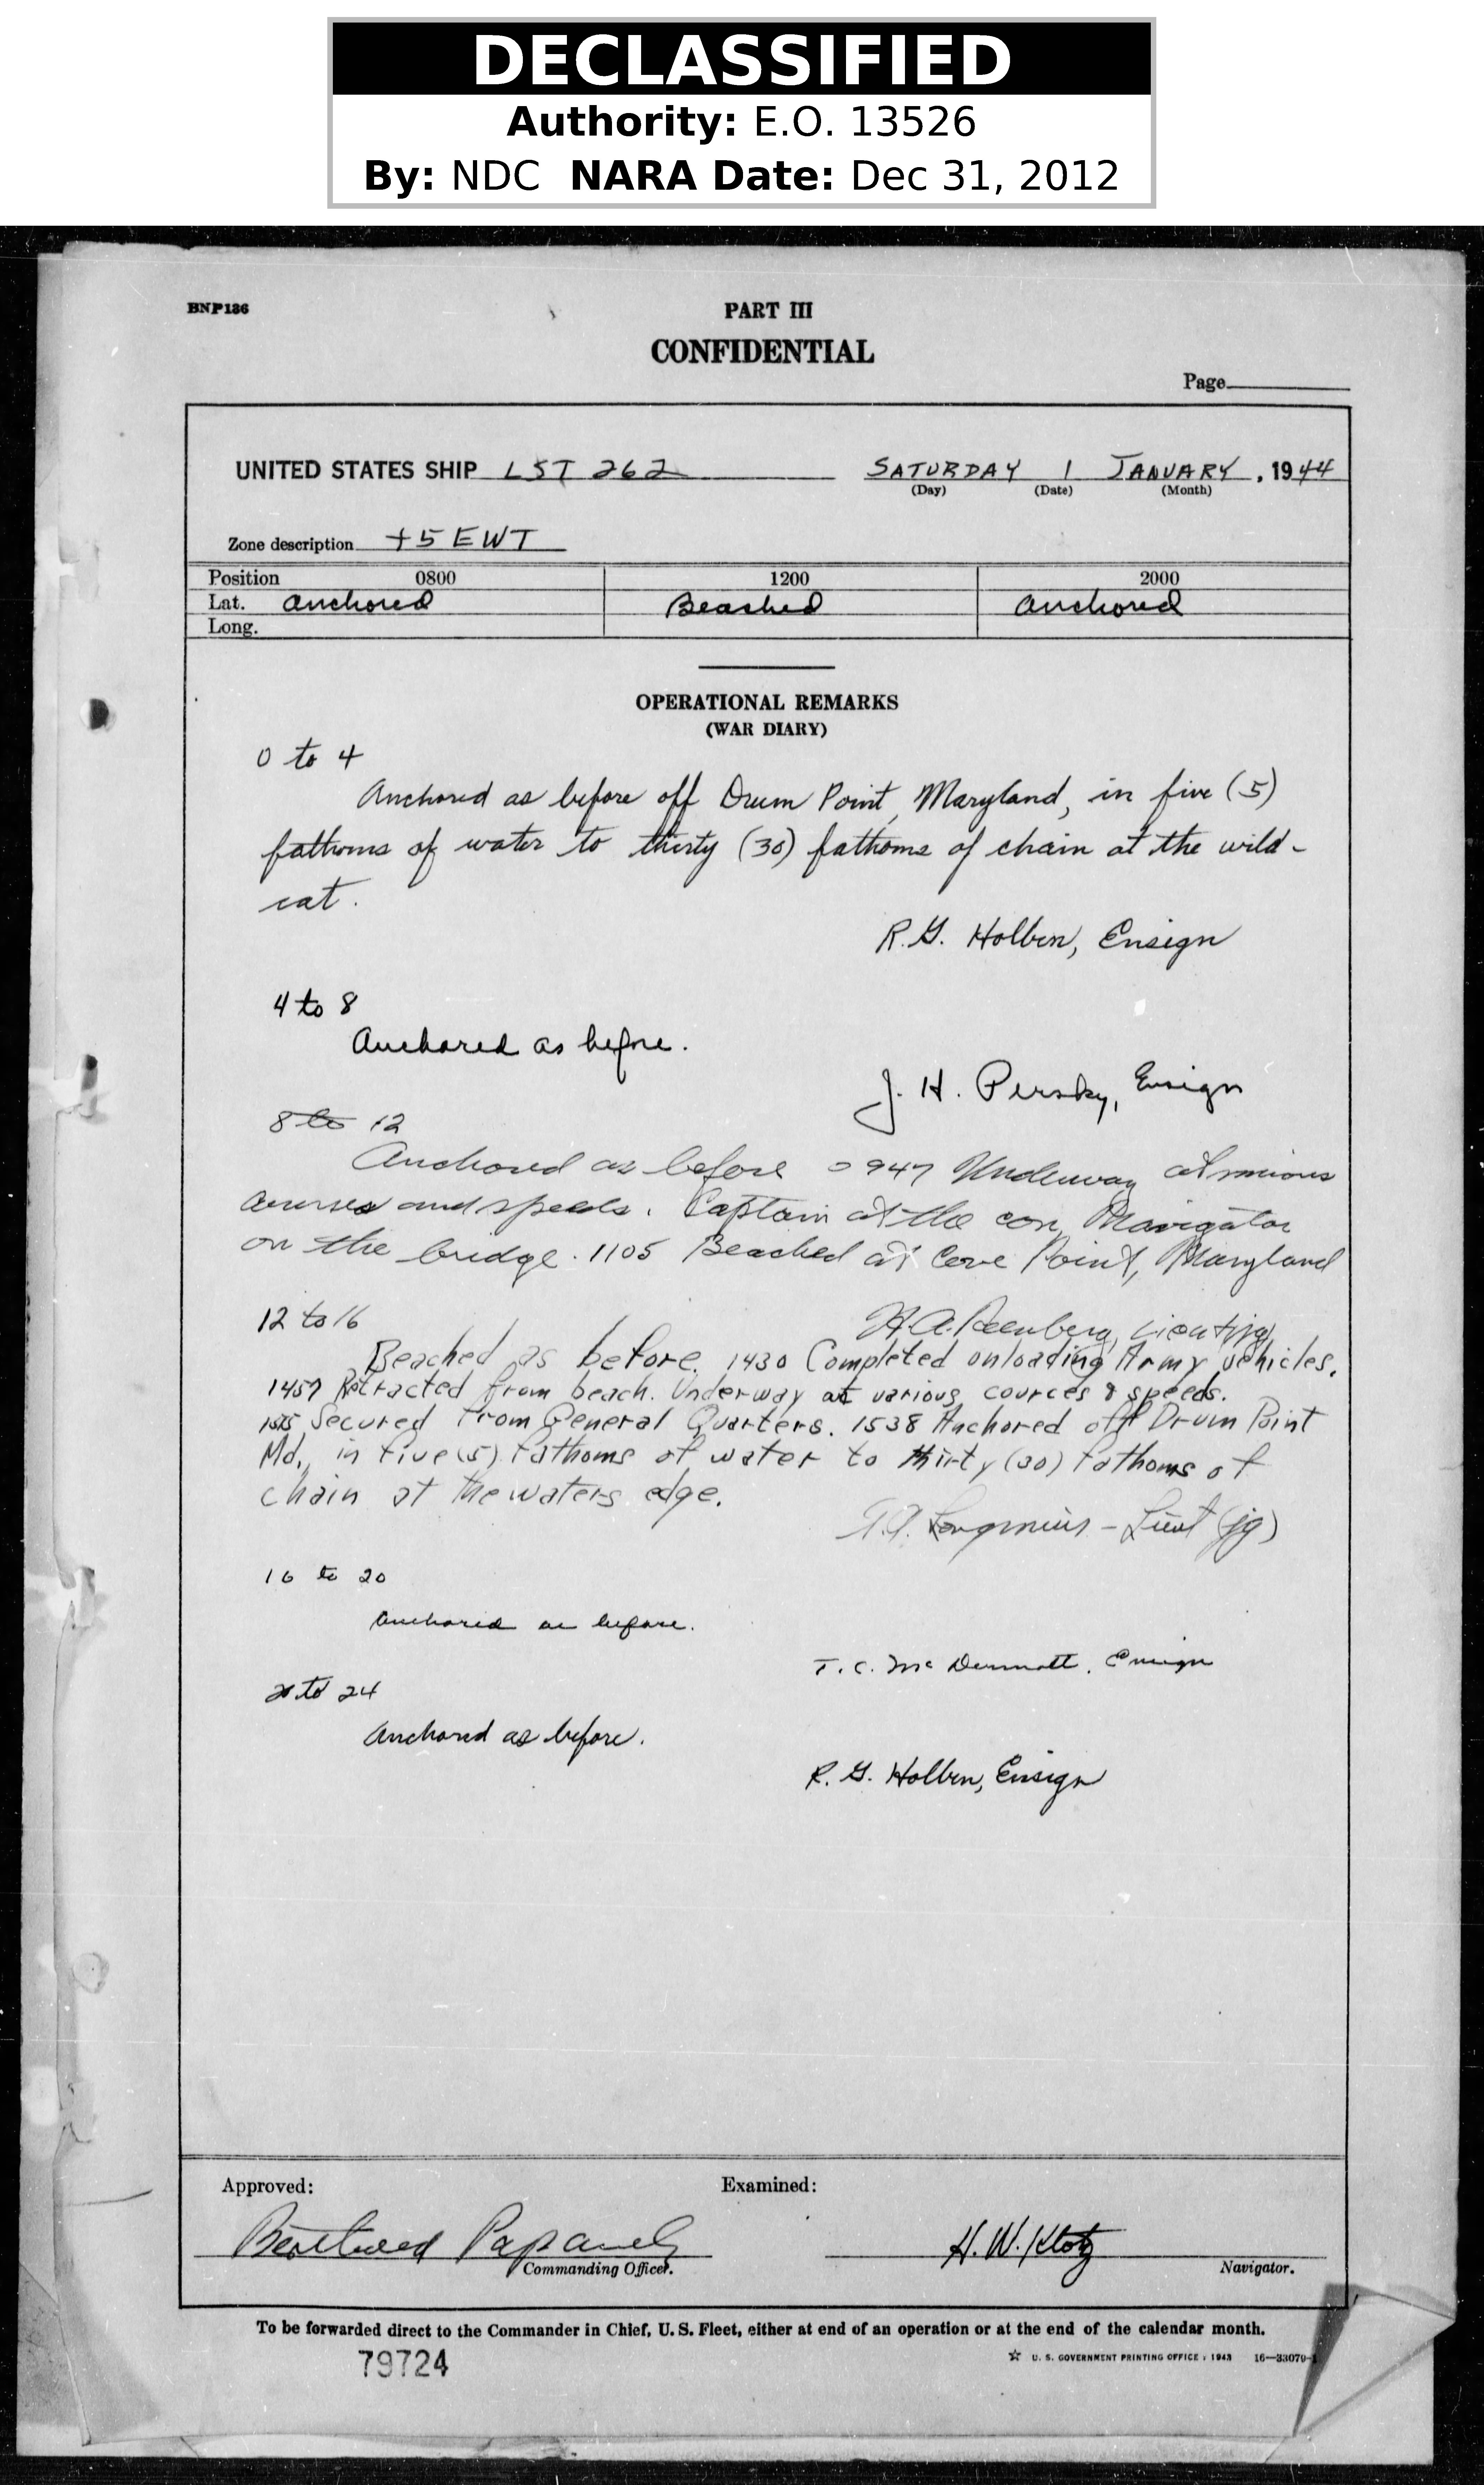 DECLASSIFIED
Authority: E.O. 13526
By: NDC NARA Date: Dec 31, 2012
BNP136
PART III
CONFIDENTIAL
Page
UNITED STATES SHIP LST 262 SATURDAY 1 JANUARY, 1944
(Day) (Date) (Month)
Zone description +5 EWT
Position 0800 1200 2000
Lat. Anchored Beached Anchored
Long.
OPERATIONAL REMARKS
(WAR DIARY)
0 to 4
Anchored as before off Drum Point, Maryland, in five (5)
fathoms of water to thirty (30) fathoms of chain at the wild-
cat.
R.G. Holben, Ensign
4 to 8
Anchored as before.
J. H. Persky, Ensign
8 to 12
Anchored as before 0947 Underway at various
courses and speeds. Captain at the con, Navigator
on the bridge. 1105 Beached at Cove Point, Maryland
H.A. Lieut (jg)
12 to 16
Beached as before. 1430 Completed onloading Army vehicles.
1457 Retracted from beach. Underway at various cources & speeds.
Secured from General Quarters. 1538 Anchored off Drum Point
Md., in five (5) fathoms of water to thirty (30) fathoms of
chain at the waters edge.
Lieut (jg)
16 to 20
Anchored as before.
T. C. McDermott, Ensign
20 to 24
Anchored as before.
R. G. Holben, Ensign
Approved: Examined:
H. W. Klotz
Commanding Officer. Navigator.
To be forwarded direct to the Commander in Chief, U. S. Fleet, either at end of an operation or at the end of the calendar month.
79724
☆ U. S. GOVERNMENT PRINTING OFFICE : 1943 16—33070-1